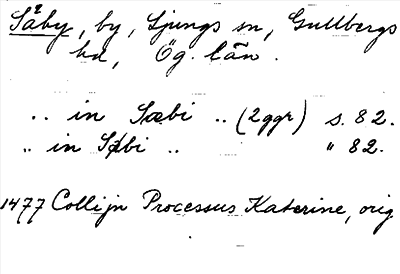 Såby, by, Ljungs sn, Gullbergs
hd, Ög. län.
.. in Sæbi .. (2 ggr) s. 82.
.. in Søbi .. " 82.
1477 Collijn Processus Katerine, orig